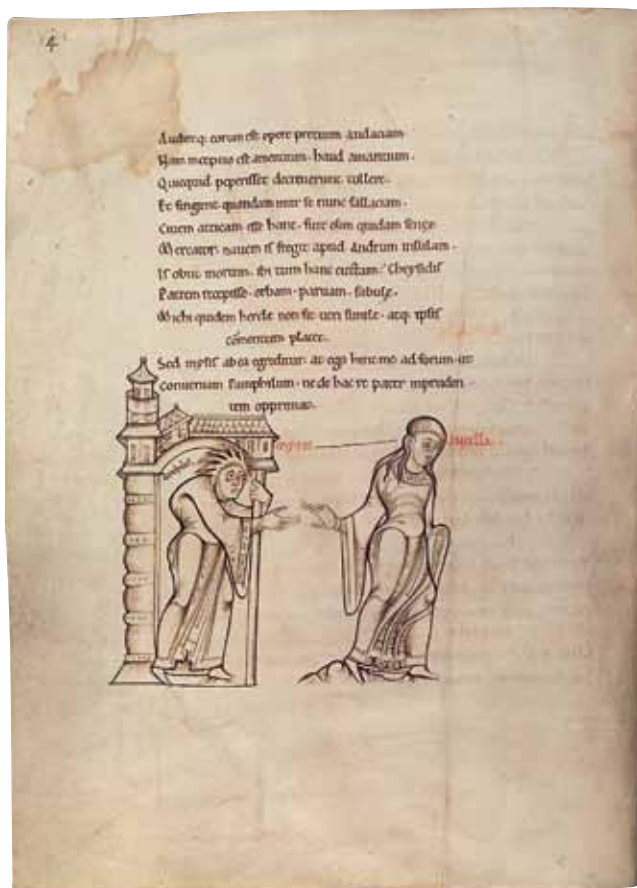 4
Audireq; eorum est opere pretium audatiam
Nam inceptio est amentium. haud amantium.
Quicquid peperisset decreverunt tollere.
Et fingunt quandam inter se nunc fallatiam.
Civem atticam esse hanc. fuit olim quidam senex
Mercator. navem is fregit apud Andrum insulam.
Is obiit mortem. ibi tum hanc eiectam Chrysidis
Patrem recepisse. orbam. parvam. fabulę.
Michi quidem hercle non fit veri simile. atq; ipsis
cōmentum placet.
Sed mysis ab ea egreditur. at ego hinc me ad forum. ut
conveniam Pamphilum. ne de hac re pater inpruden
tem opprimat.